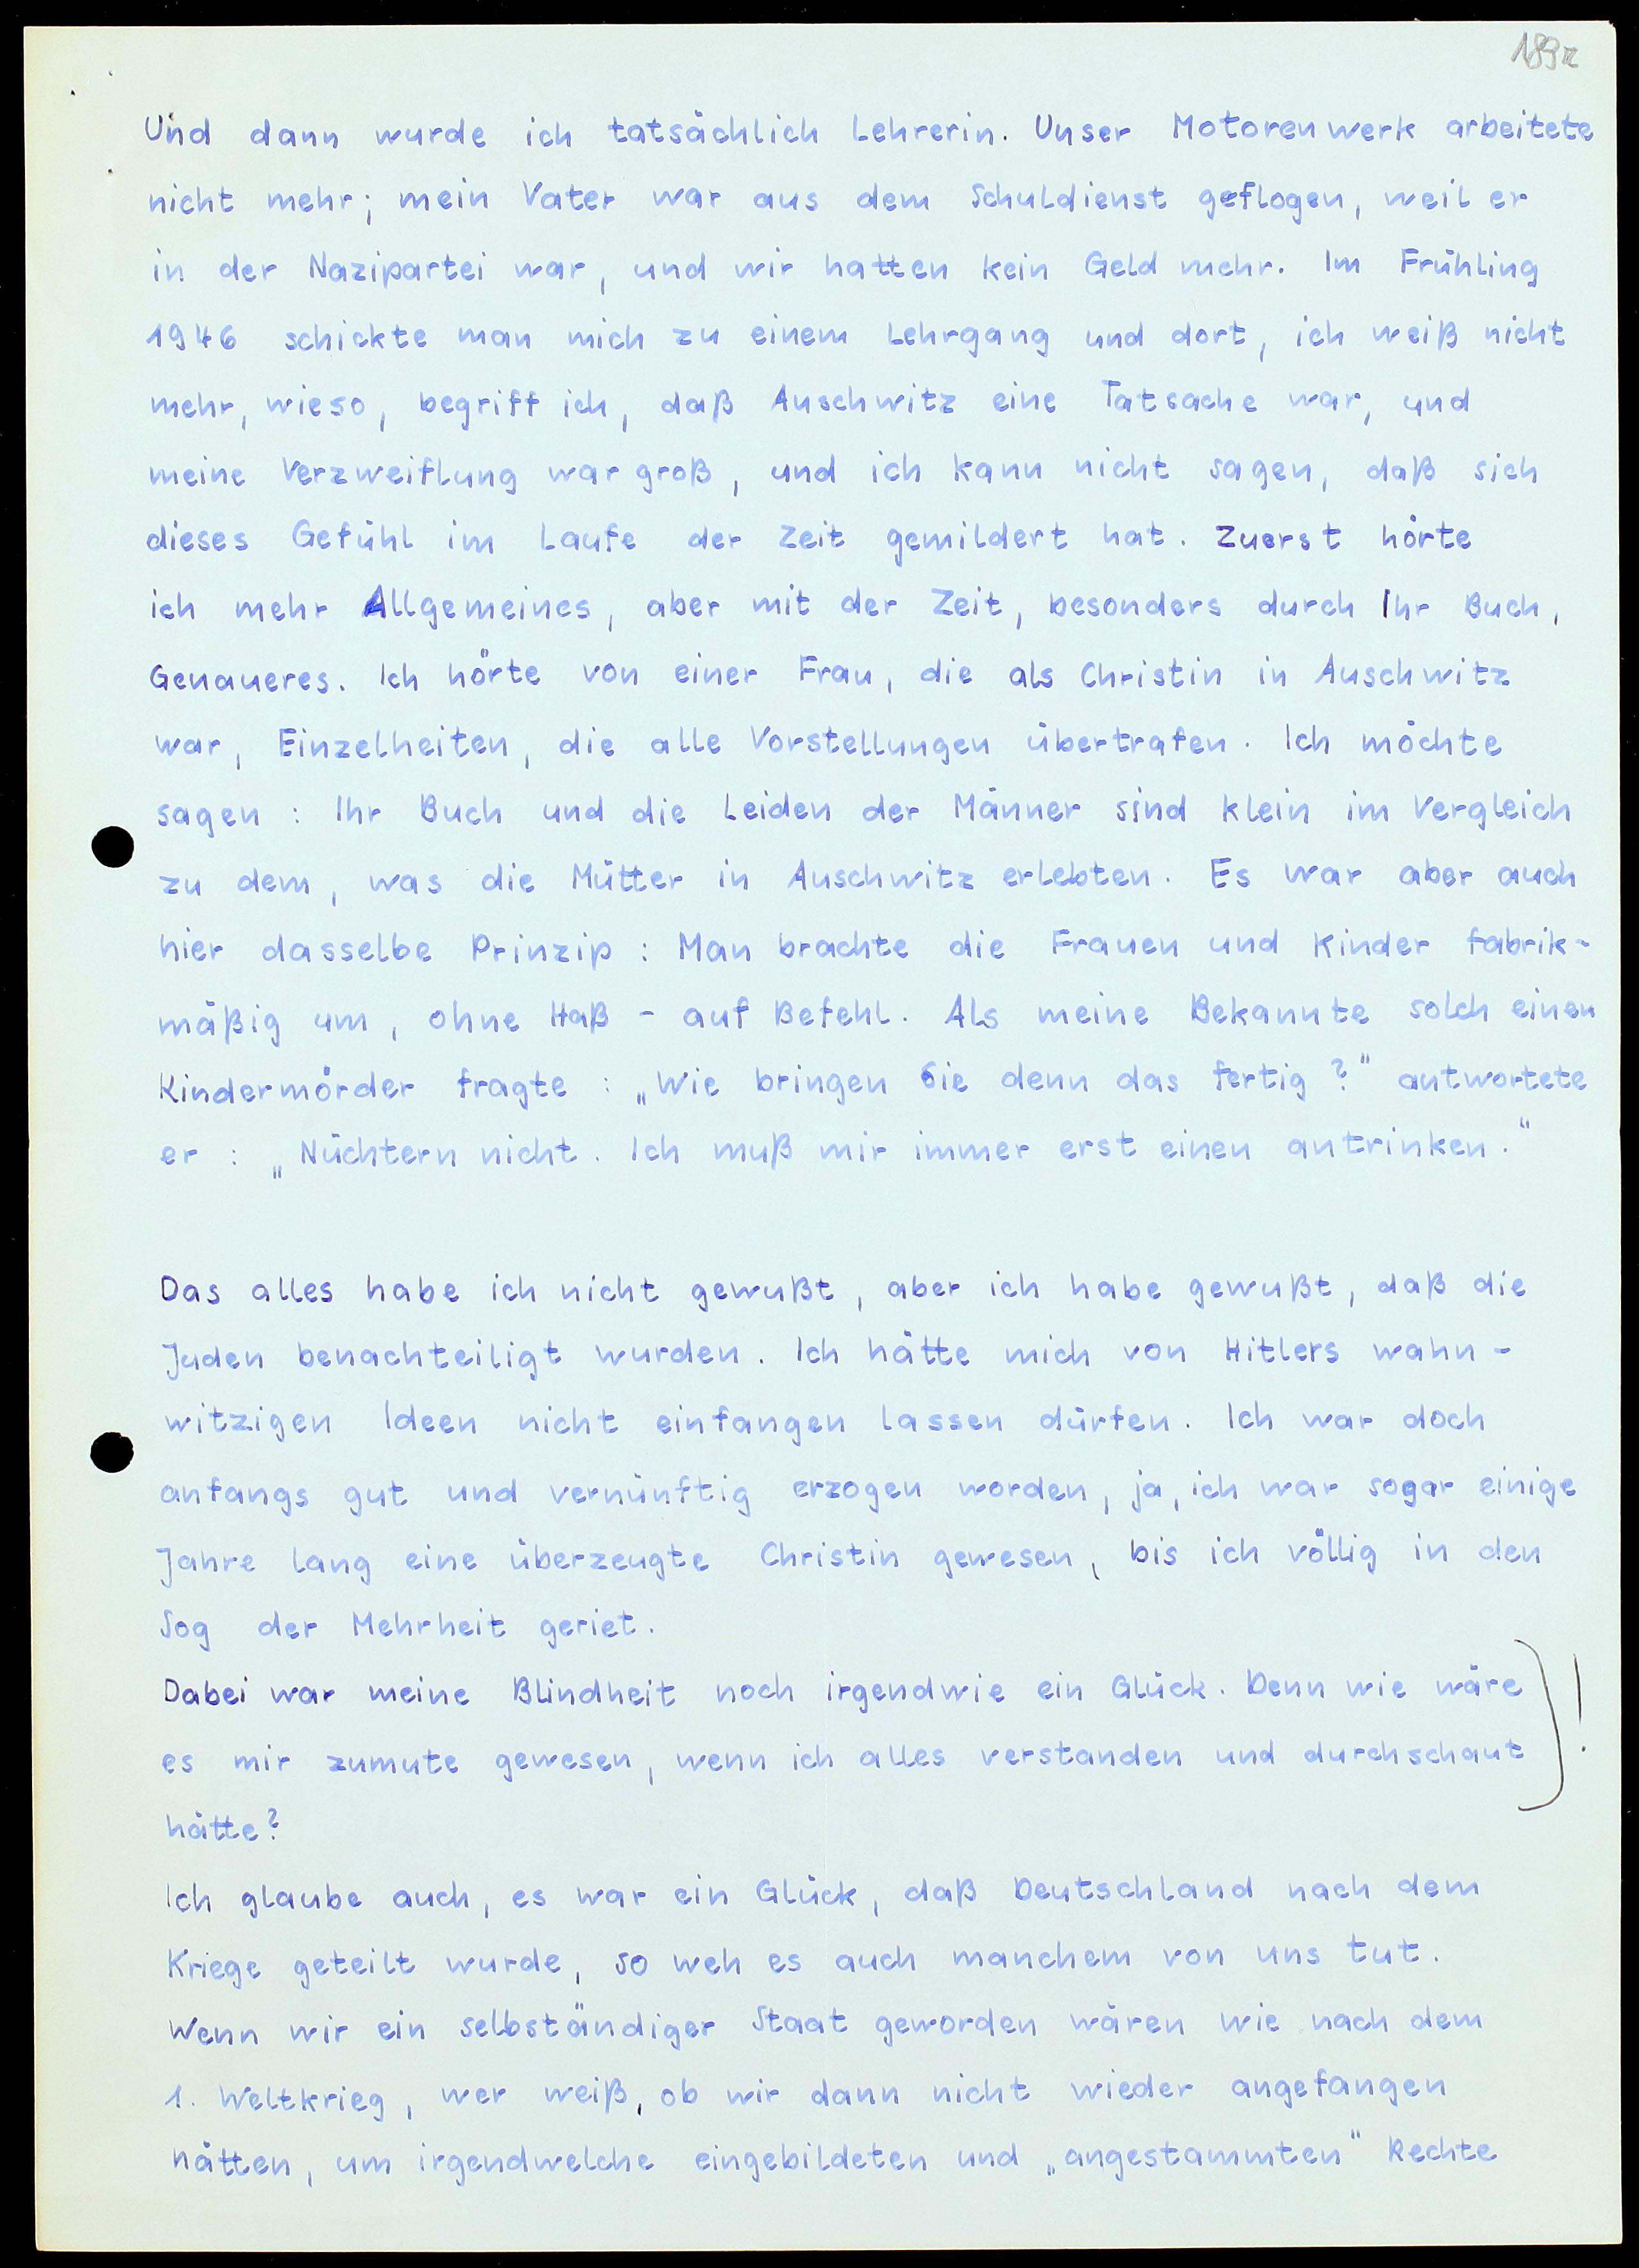 189r
Und dann wurde ich tatsächlich Lehrerin. Unser Motorenwerk arbeitete
nicht mehr; mein Vater war aus dem Schuldienst geflogen, weil er
in der Nazipartei war, und wir hatten kein Geld mehr. Im Frühling
1946 schickte man mich zu einem Lehrgang und dort, ich weiß nicht
mehr, wieso, begriff ich, daß Auschwitz eine Tatsache war, und
meine Verzweiflung war groß, und ich kann nicht sagen, daß sich
dieses Gefühl im Laufe der Zeit gemildert hat. Zuerst hörte
ich mehr Allgemeines, aber mit der Zeit, besonders durch Ihr Buch,
Genaueres. Ich hörte von einer Frau, die als Christin in Auschwitz
war, Einzelheiten, die alle Vorstellungen übertrafen. Ich möchte
sagen: Ihr Buch und die Leiden der Männer sind klein im Vergleich
zu dem, was die Mütter in Auschwitz erlebten. Es war aber auch
hier dasselbe Prinzip: Man brachte die Frauen und Kinder fabrik-
mäßig um, ohne Haß - auf Befehl. Als meine Bekannte solch einen
Kindermörder fragte: „Wie bringen Sie denn das fertig?" antwortete
er: „Nüchtern nicht. Ich muß mir immer erst einen antrinken."
Das alles habe ich nicht gewußt, aber ich habe gewußt, daß die
Juden benachteiligt wurden. Ich hätte mich von Hitlers wahn-
witzigen Ideen nicht einfangen lassen dürfen. Ich war doch
anfangs gut und vernünftig erzogen worden, ja, ich war sogar einige
Jahre lang eine überzeugte Christin gewesen, bis ich völlig in den
Sog der Mehrheit geriet.
Dabei war meine Blindheit noch irgendwie ein Glück. Denn wie wäre
es mir zumute gewesen, wenn ich alles verstanden und durchschaut
hätte?
!
Ich glaube auch, es war ein Glück, daß Deutschland nach dem
Kriege geteilt wurde, so weh es auch manchem von uns tut.
Wenn wir ein selbständiger Staat geworden wären wie nach dem
1. Weltkrieg, wer weiß, ob wir dann nicht wieder angefangen
hätten, um irgendwelche eingebildeten und „angestammten" Rechte